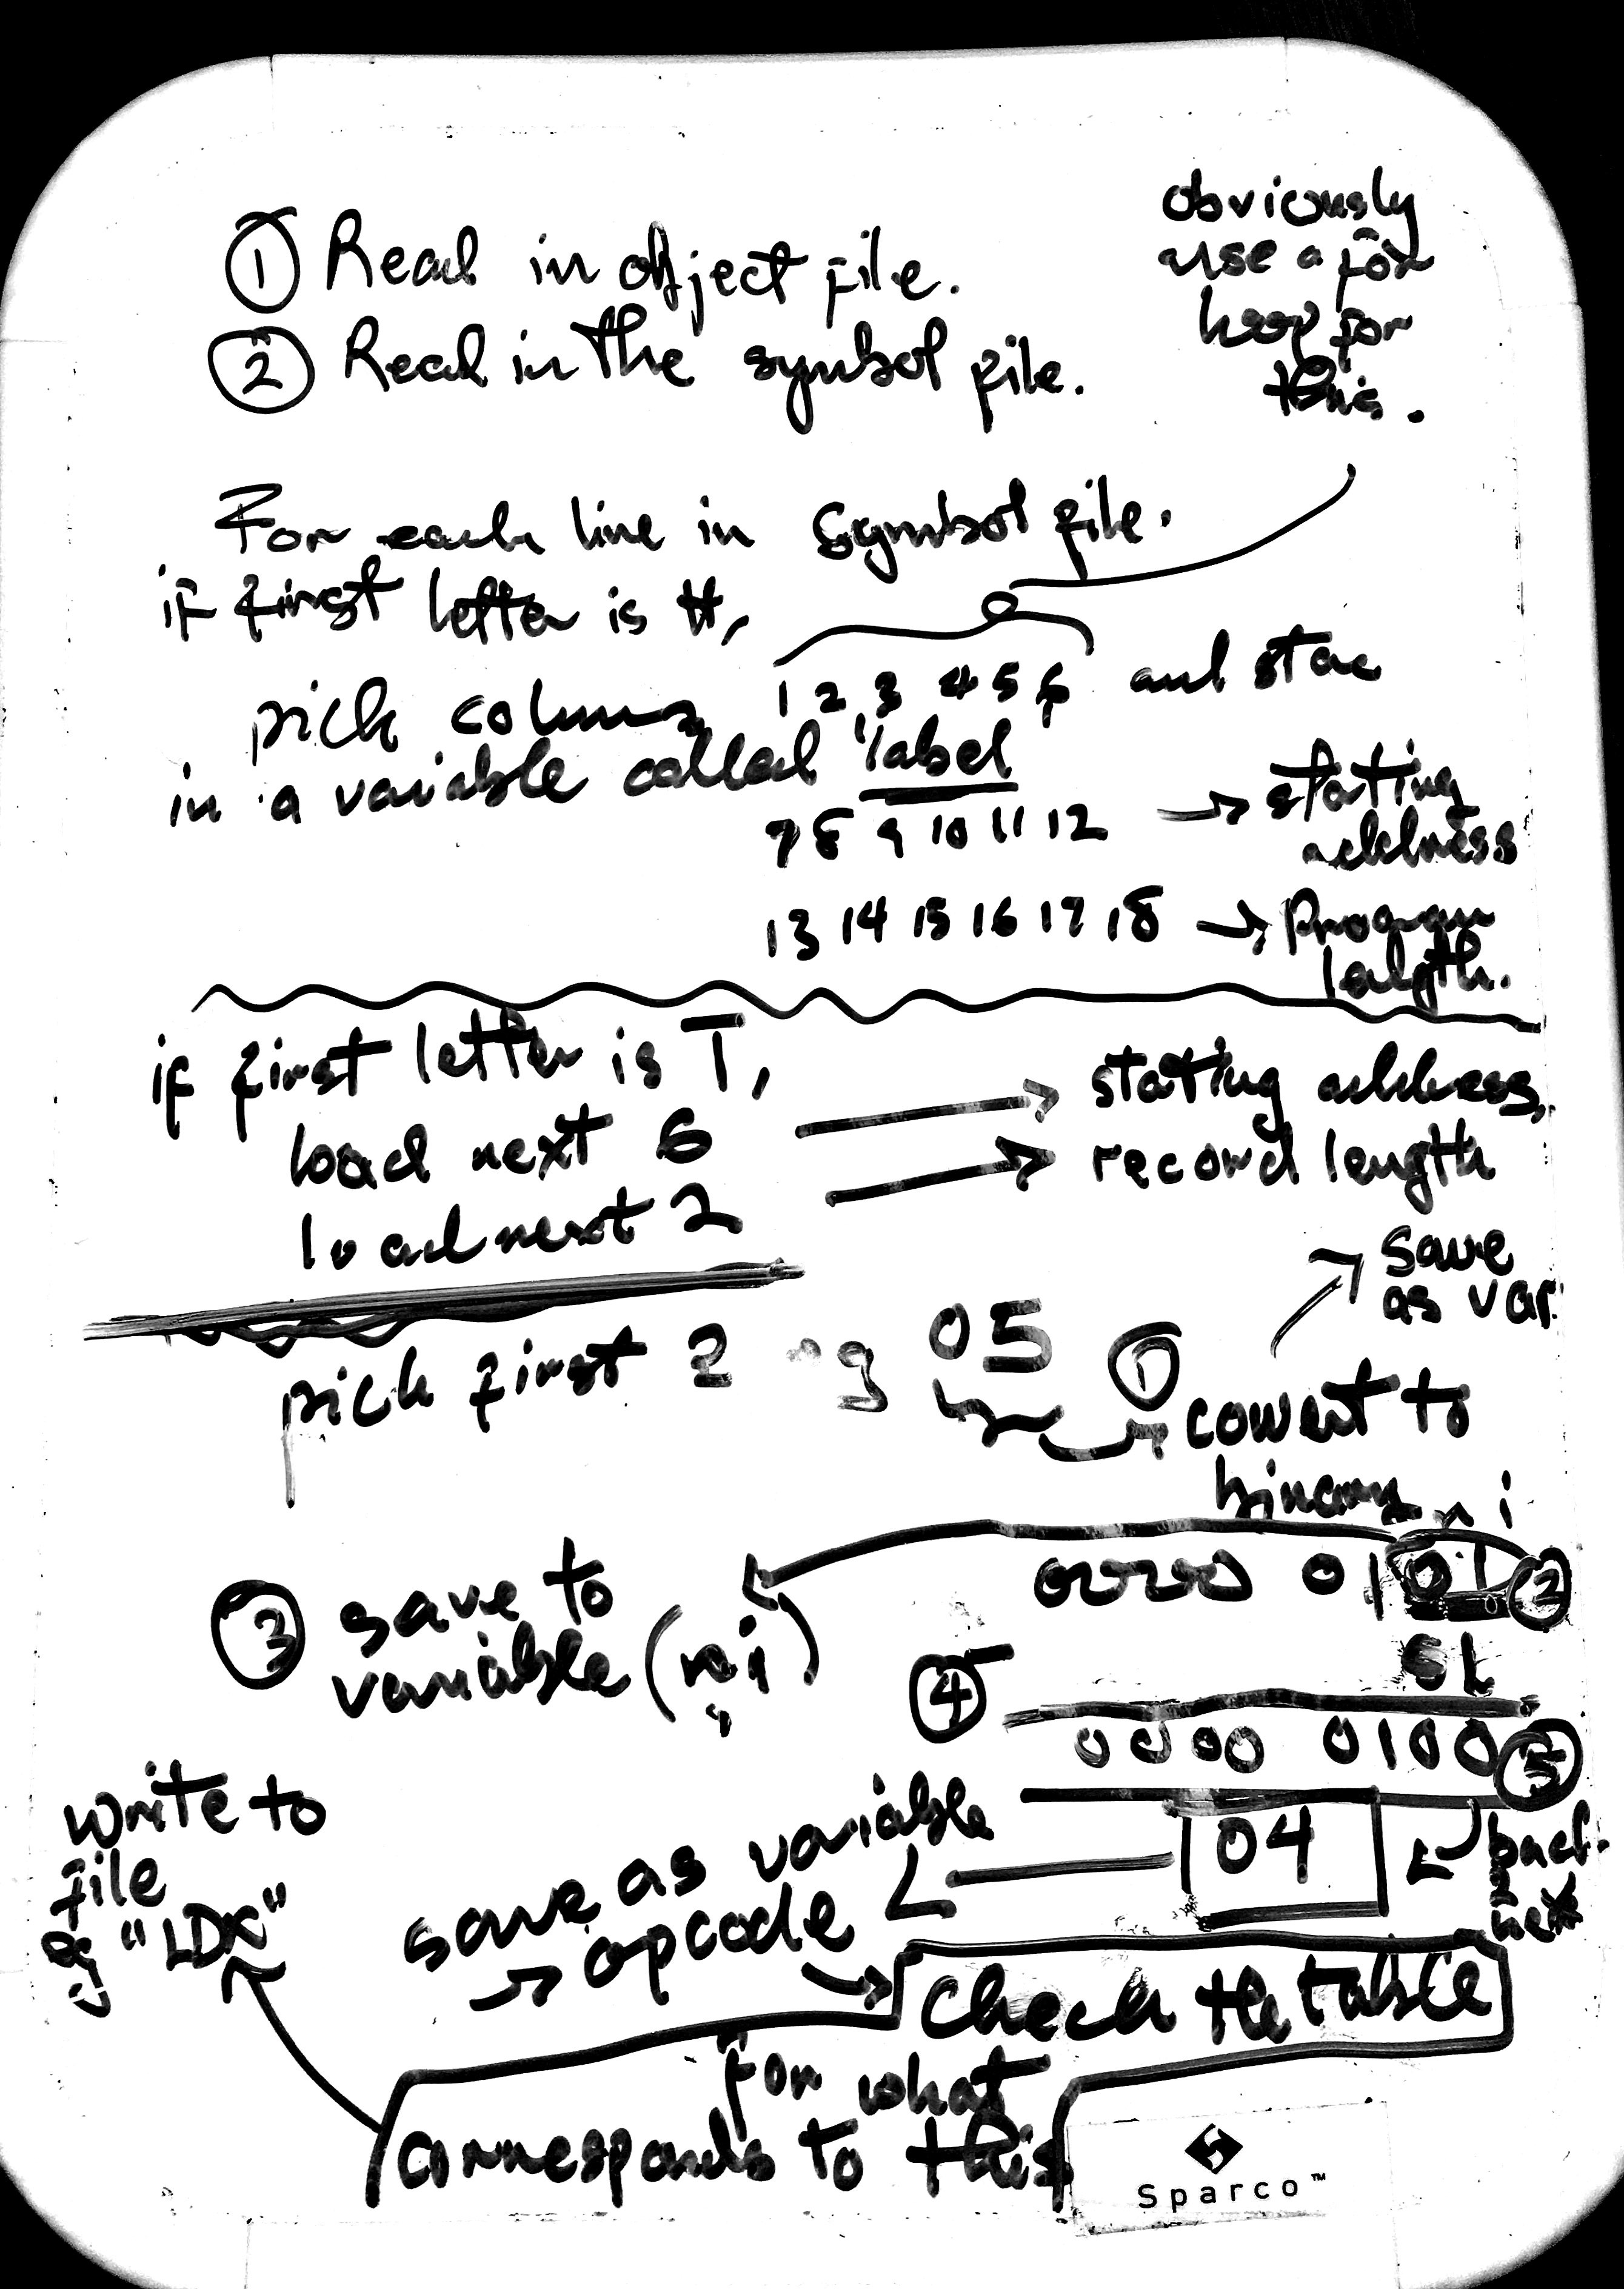 ① Read in object file.
② Read in the symbol file.
obviously
use a for
loop for
this.
For each line in symbol file.
if first letter is H,
pick column 1 2 3 4 5 6 and store
in a variable called "label
7 8 9 10 11 12 → stating
address
13 14 15 16 17 18 → Program
length.
if first letter is T,
load next 6 → stating address,
load next 2 → record length
pick first 2 eg 05
① convert to
binary
→ save
as var.
n i
0000 0101 ②
③ save to
variable (n,i)
④
0000 0100 ⑤
04
back
hex
save as variable
→ opcode → Check the table
for what
corresponds to this
Write to
file
eg "LDX"
Sparco™